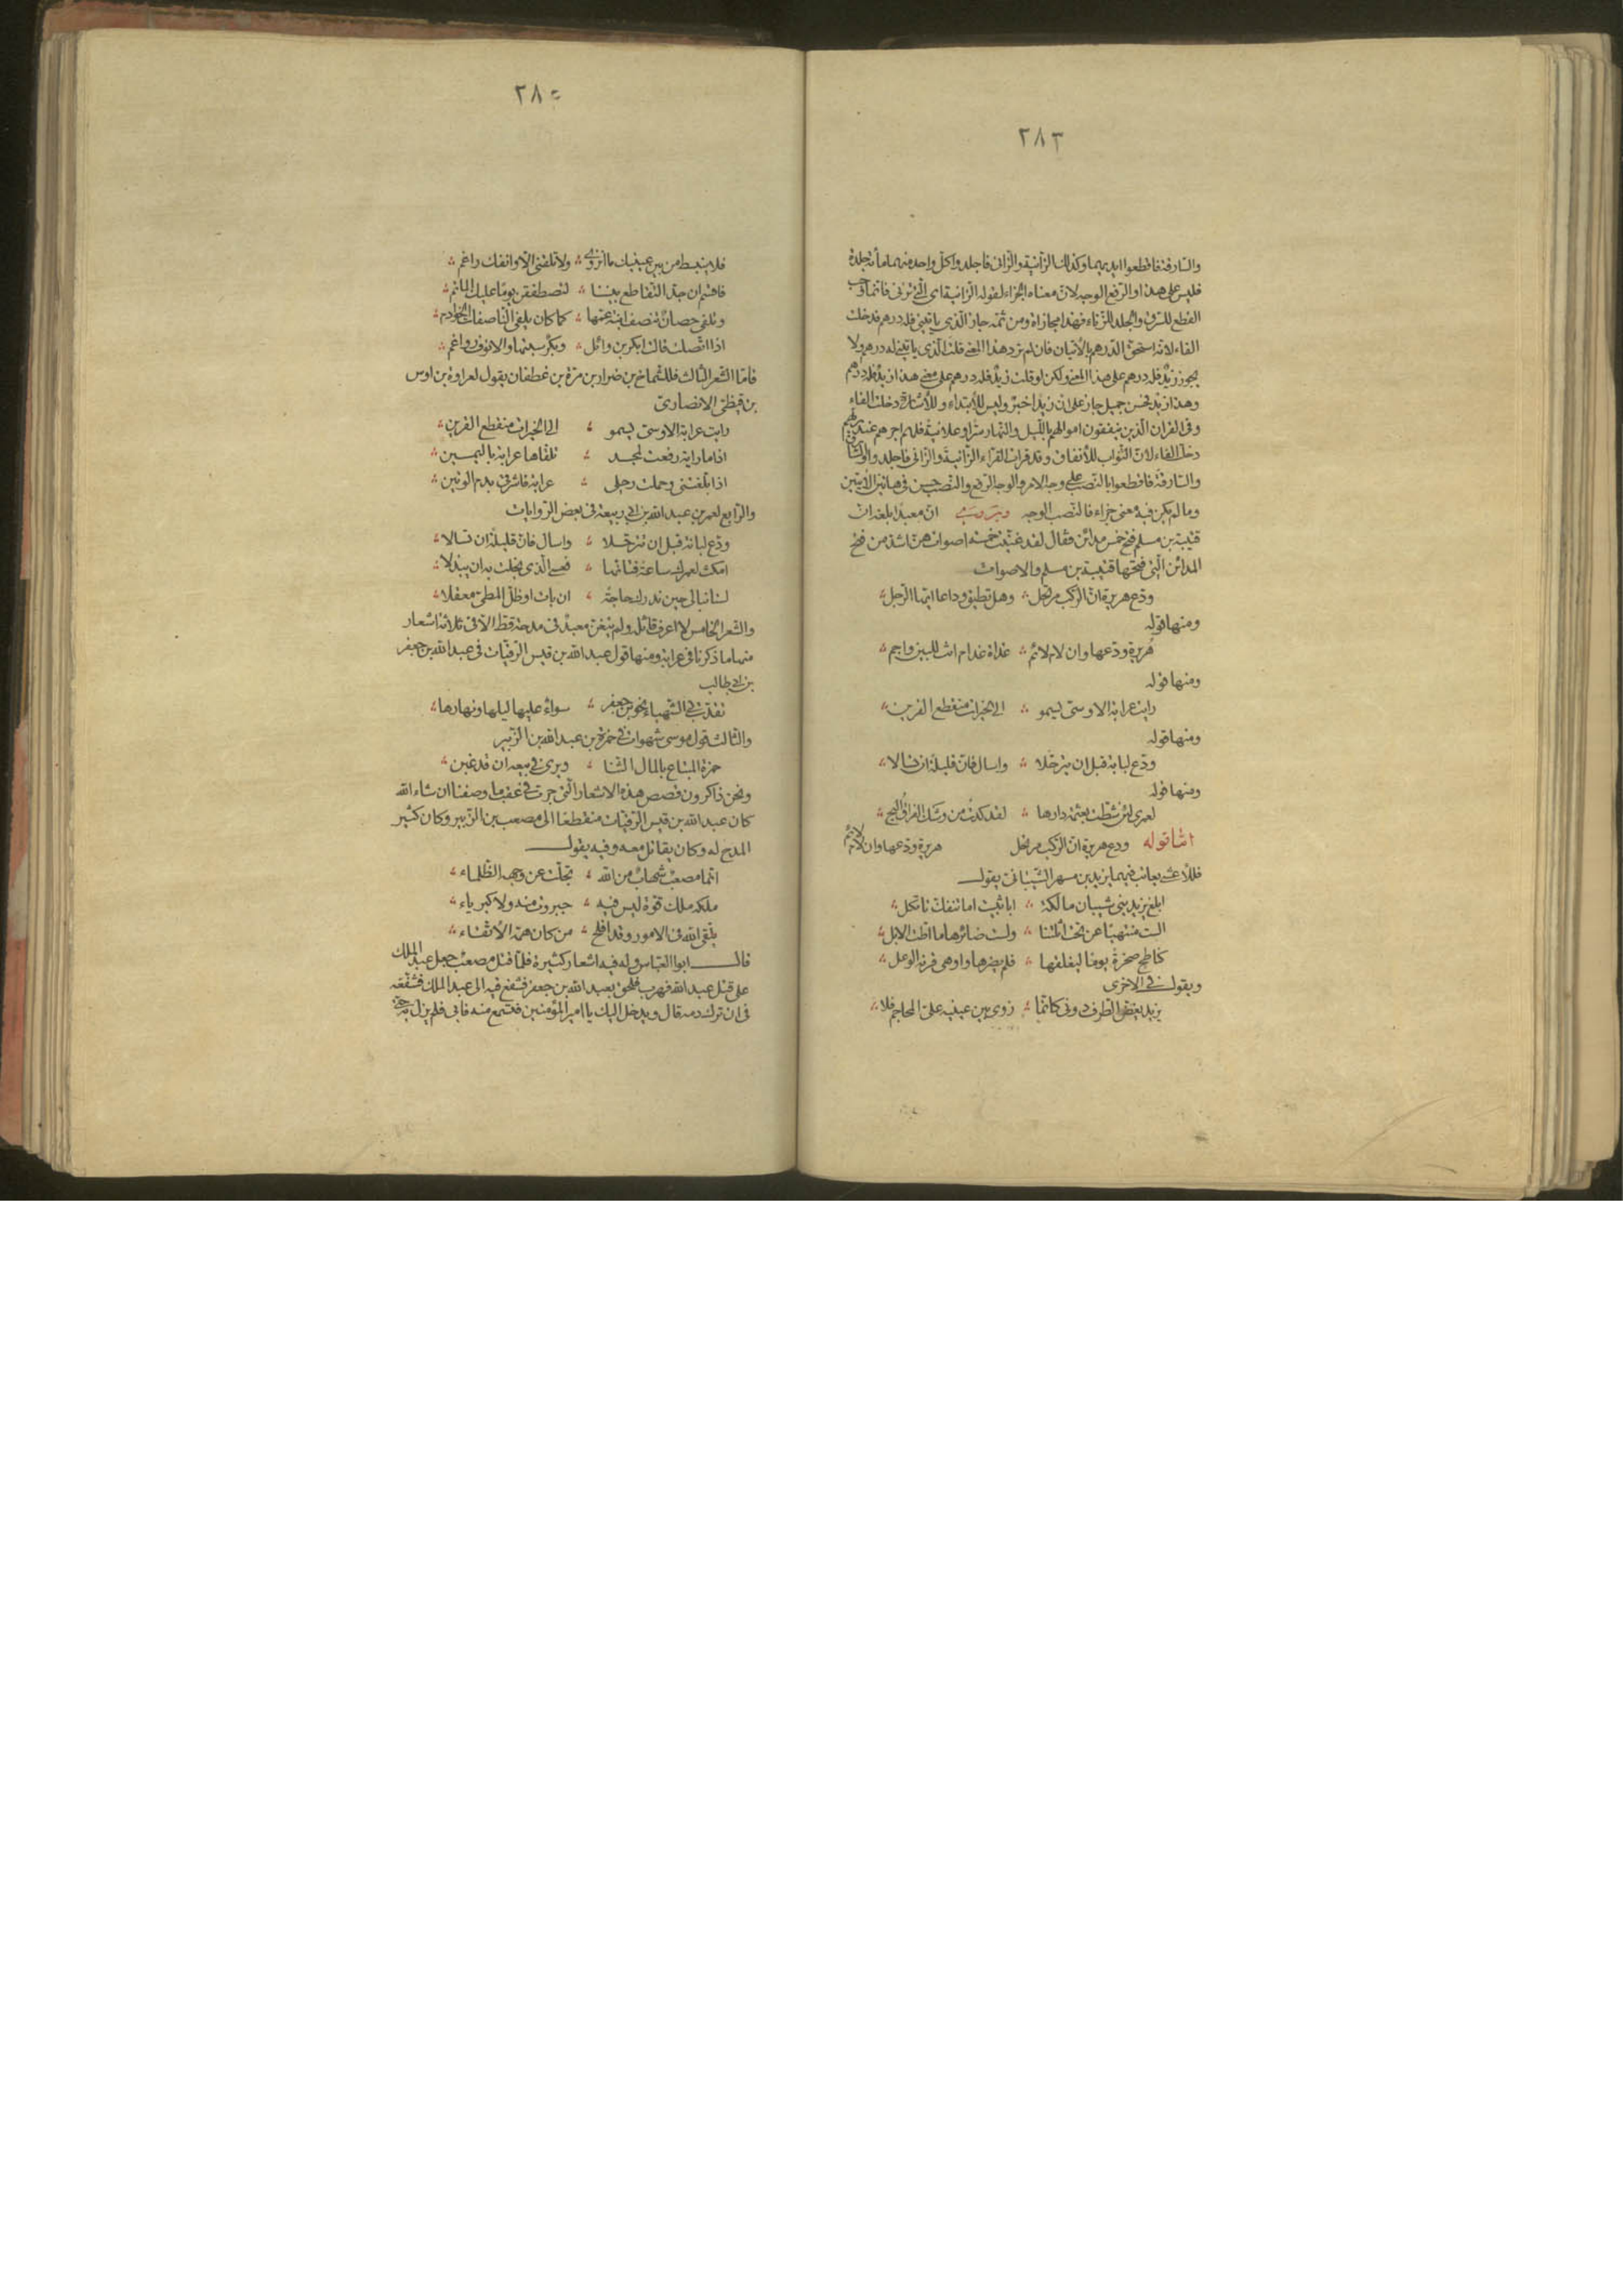 ٢٨٣
والسارقة فاقطعوا ايديهما وكذلك الزانية والزانى فاجلدوا كل واحد منهما مأئة جلدة
فليس على هذا والرفع الوجه لان معناه الجزاء لقوله الزانية اى التى تزنى فانما وجب
القطع للسرق والجلد للزناء فهذا مجازاة ومن ثمه جاز الذى ياتينى فله درهم فدخلت
الفاء لانه استحق الدرهم بالاتيان فان لم ترد هذا المعنى قلت الذى ياتينى له درهم ولا
يجوز زيد فله درهم على هذا المعنى ولكن لو قلت زيد فله درهم على معنى هذا زيد فله درهم
وهذا زيد فحسن جميل جاز على ان زيدا خبر وليس للابتداء وللاشارة دخلت الفاء
وفى القران الذين ينفقون اموالهم بالليل والنهار سرا وعلانية فلهم اجرهم عند ربهم
دخلت الفاء لان الثواب للأنفاق وقد قرات القراء الزانية والزانى فاجلدوا والسارق
والسارقة فاقطعوا بالنصب على وجه الامر والوجه الرفع والنصب حسن فى هاتين الأيتين
وما لم يكن فيه معنى جزاء فالنصب الوجه ويروى ان معبدا بلغه ان
قتيبة بن مسلم فتح خمس مدائن فقال لقد غنيت خمسة اصوات هن اشد من فتح
المدائن التى فتحها قتيبة بن مسلم والاصوات
ودع هريرة ان الركب مرتحل ؞ وهل تطيق وداعا ايها الرجل ؞
ومنها قوله
هريرة ودعها وان لام لائم ؞ غداة غد ام انت للبين واجم ؞
ومنها قوله
رايت عرابة الاوسى يسمو ؞ الى الخيرات منقطع القرين ؞
ومنها قوله
ودع لبابة قبل ان تترحلا ؞ واسال فان قليلة ان تسالا ؞
ومنها قوله
لعمرى لئن شطت بعثمة دارها ؞ لقد كدت من وشك الفراق اليح ؞
اما قوله ودع هريرة ان الركب مرتحل هريرة ودعها وان لام لائم
فللأعشى يعاتب فيهما يزيد بن مسهر الشيبانى يقول
ابلغ يزيد بنى شيبان مالكة ؞ ابا ثبيت اما تنفك تاتكل ؞
الست منتهيا عن نحت اثلتنا ؞ ولست ضائرها ما اطت الابل ؞
كناطح صخرة يوما ليفلقها ؞ فلم يضرها واوهى قرنه الوعل ؞
ويقول فى الاخرى
يزيد يغض الطرف دونى كانما ؞ زوى بين عينيه على المحاجم فلا ؞
٢٨٥
فلا ينبسط من بين عينيك ما انزوى ؞ ولا تلقنى الا وانفك راغم ؞
فاقسم ان جد التقاطع بيننا ؞ لتصطفقن يوما عليك الماتم ؞
وتلقى حصان تنصف ابنة عمها ؞ كما كان يلقى الناصفات الخوادم ؞
اذا اتصلت قالت ابكر بن وائل ؞ وبكر سبتها والانوف رواغم ؞
فاما الشعر الثالث فللشماخ بن ضرار بن مرة بن غطفان يقول لعرابة بن اوس
بن قيظى الانصارى
رايت عرابة الاوسى يسمو ؞ الى الخيرات منقطع القرين ؞
اذا ما راية رفعت لمجد ؞ تلقاها عرابة باليمين ؞
اذا بلغتنى وحملت رحلى ؞ عرابة فاشرقى بدم الوتين ؞
والرابع لعمر بن عبد الله بن ابى ربيعة فى بعض الروايات
ودع لبانة قبل ان تترحلا ؞ واسال فان قليلة ان تسالا ؞
امكث لعمرك ساعة فتانها ؞ فعسى الذى بخلت به ان يبذلا ؞
لسنا نبالى حين ندرك حاجة ؞ ان بات او ظل المطى معقلا ؞
والشعر الخامس لا اعرف قائله ولم يتغن معبد فى مدحة قط الا فى ثلاثة اشعار
منها ما ذكرنا فى عرابة ومنها قول عبد الله بن قيس الرقيات فى عبد الله بن جعفر
بن ابى طالب
تقدت بى الشهباء نحو بن جعفر ؞ سواء عليها ليلها ونهارها ؞
والثالث قول موسى شهوات فى حمزة بن عبد الله بن الزبير
حمزة المبتاع بالمال الثنا ؞ ويرى فى بيعه ان قد غبن ؞
ونحن ذاكرون قصص هذه الاشعار التى جرت فى عقب ما وصفنا ان شاء الله
كان عبد الله بن قيس الرقيات منقطعا الى مصعب بن الزبير وكان كثير
المدح له وكان يقاتل معه وفيه يقول
انما مصعب شهاب من الله ؞ تجلت عن وجهه الظلماء ؞
ملكه ملك قوة ليس فيه ؞ جبروت منه ولا كبرياء ؞
يتقى الله فى الامور وقد افلح ؞ من كان همه الأتقاء ؞
قال ابو العباس وله فيه اشعار كثيرة فلما قتل مصعب جعل عبد الملك
على قتل عبد الله فهرب فلحق بعبد الله بن جعفر فشفع فيه الى عبد الملك فشفعه
فى ان ترك دمه قال ويدخل اليك يا امير المؤمنين فتسمع منه فابى فلم يزل به حتى